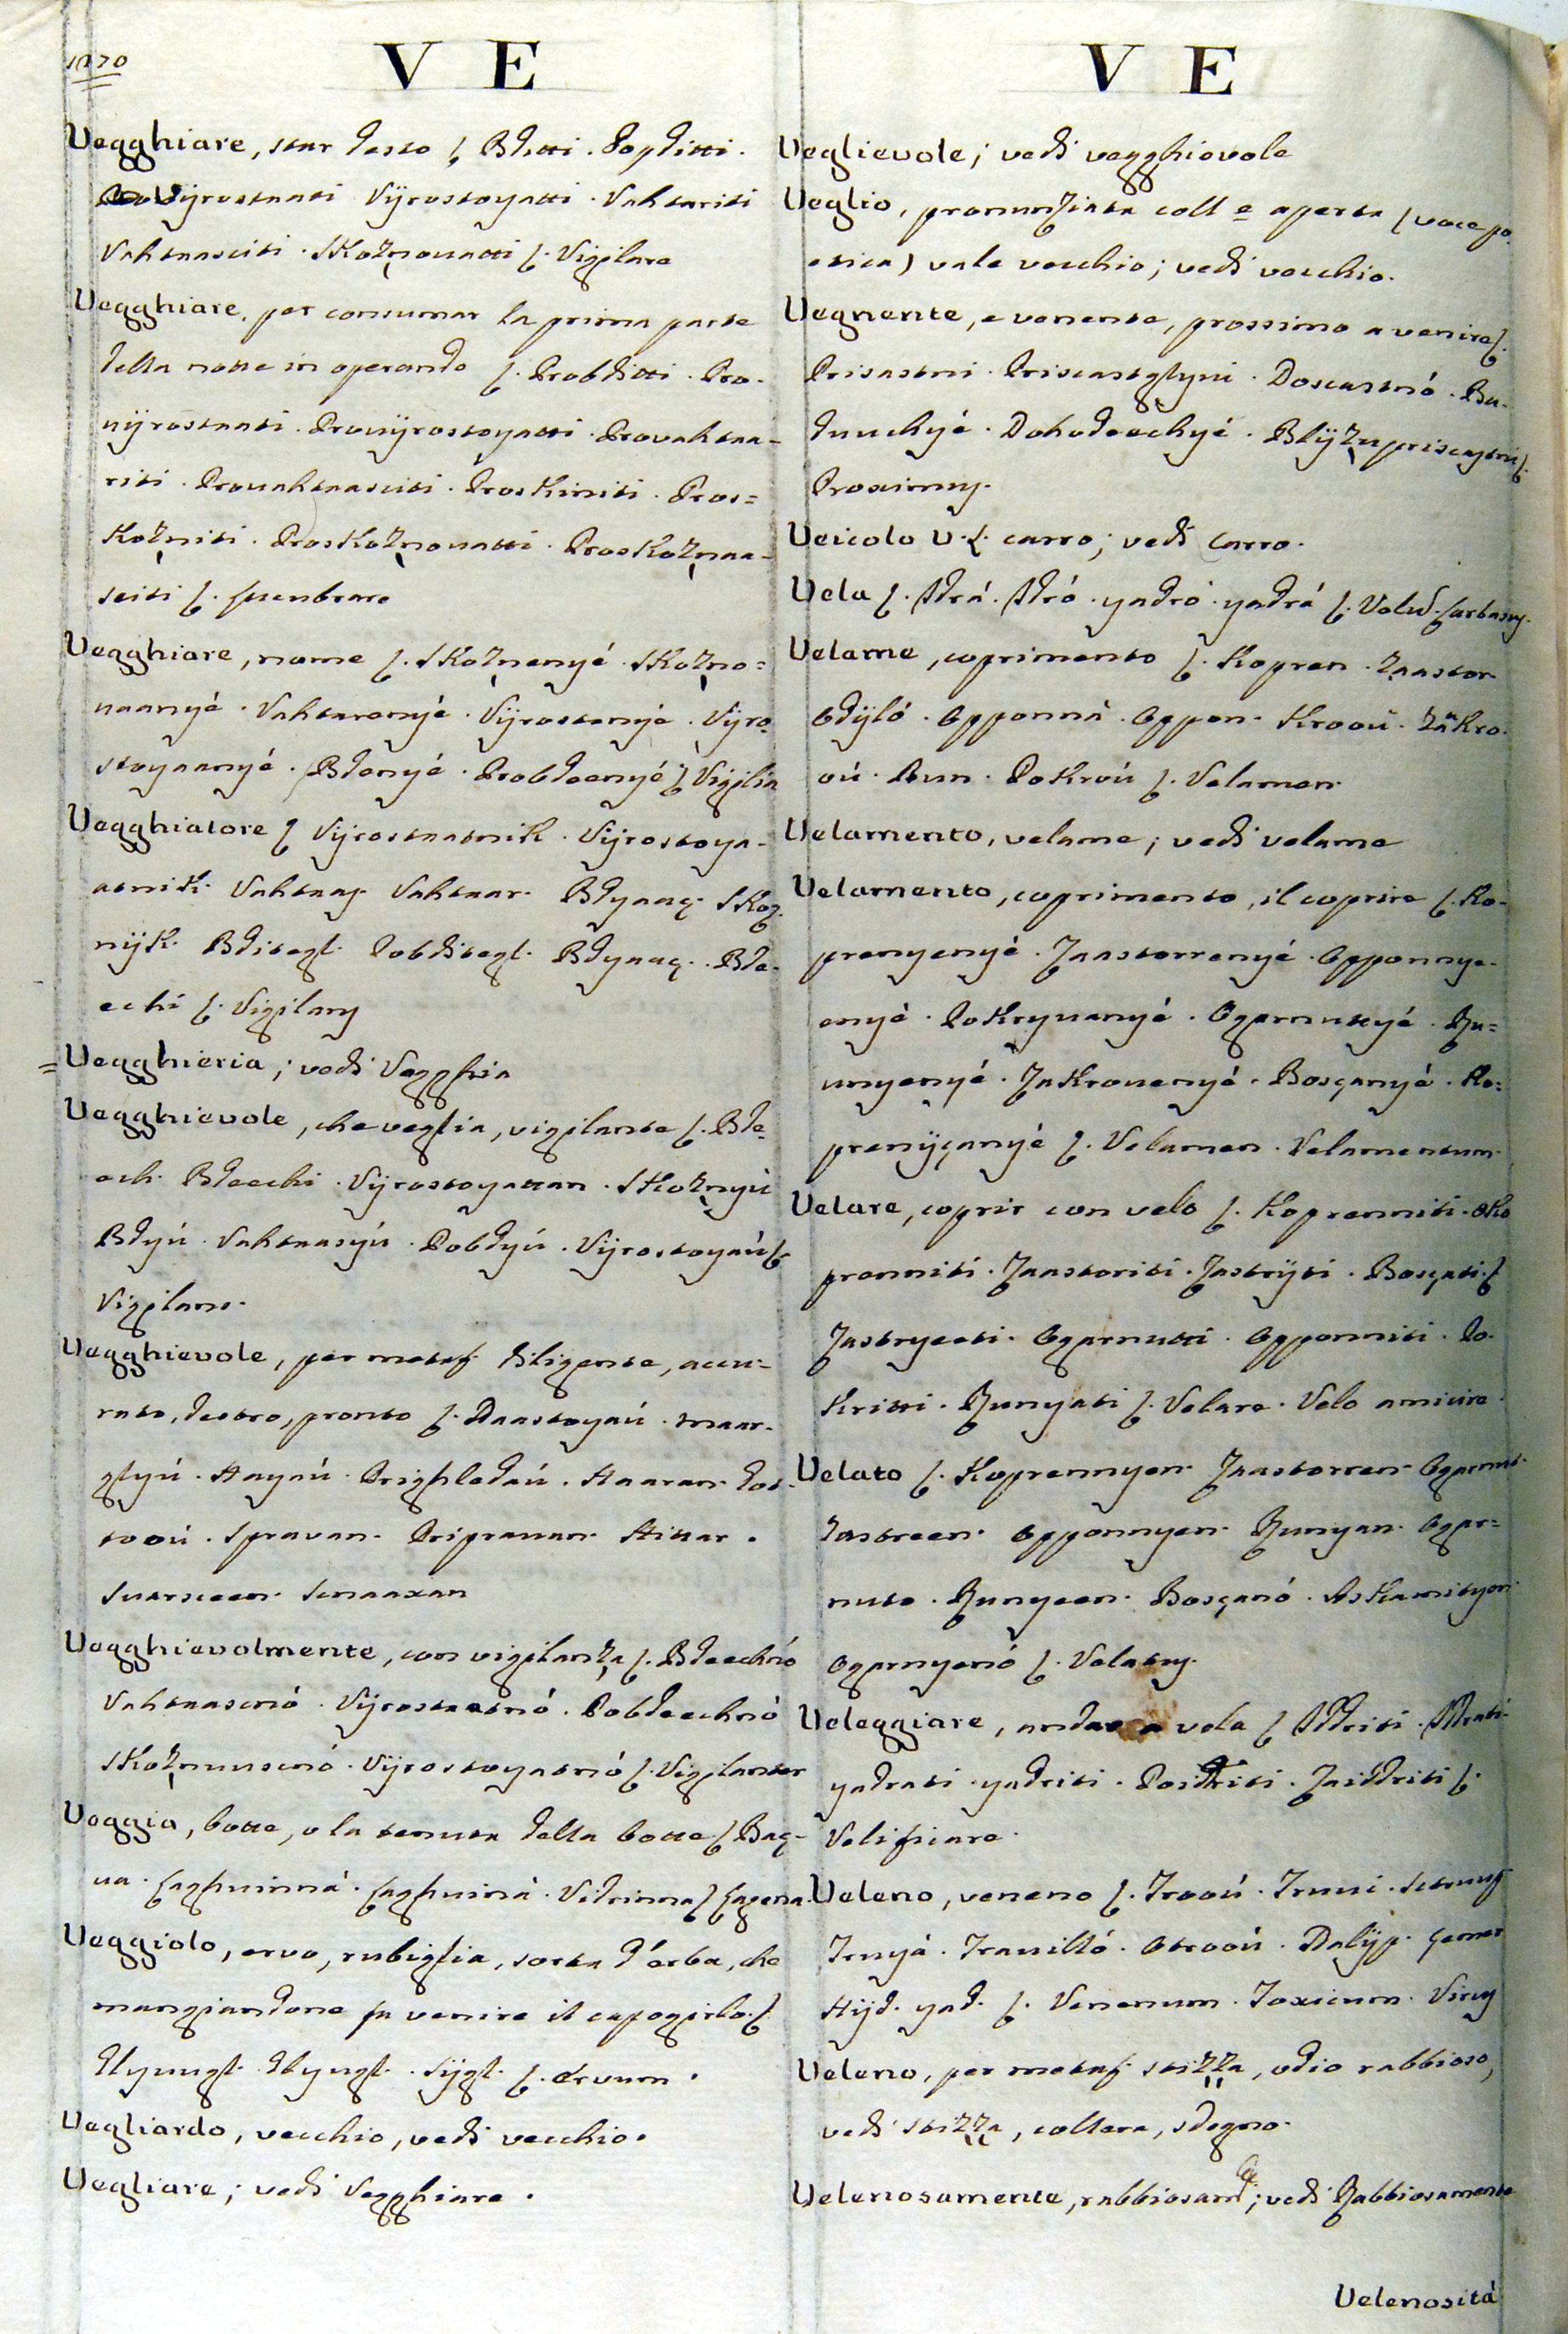 1070
V E
Vegghiare, star desto ʃ Bdetti. Pobditti.
Vijrostaati Vijrostoyatti. Vahtariti
Vahtaasciti. Skoz̩novatti ʃ. Vigilare
Vegghiare, per consumar la prima parte
della notte in operando ʃ. Probditti. Pro-
vijrostaati. Provijrostoyatti. Provahtaa-
riti. Provahtaasciti. Proskiniti. Pros=
koz̩niti. Proskoz̩novatti. Proskoz̩naa-
sciti ʃ.
Vegghiare, nome ʃ. Skoz̩nenyé. Skoz̩no=
vaanyé. Vahtarenyé. Vijrostenyé. Vijro=
stoyaanyé. Bdenyé. Probdeenyé ʃ Vigilia
Vegghiatore ʃ Vijrostaatnik. Vijrostoya-
atnik. Vahtaay. Vahtaar. Bdyaaç. Skoz̩-
nijk. Bditegl. Pobditegl. Bdyaaç. Bde-
echi ʃ. Vigilans
= Vegghieria; vedi Vegghia
Vegghievole, che veglia, vigilante ʃ. Bde=
ech. Bdeechi. Vijrostoyattan. Skoz̩nyú
Bdyú. Vahtaasyú. Pobdyú. Vijrostoyaú ʃ.
Vigilans.
Vegghievole, per metaf. diligente, accu=
rato, destro, pronto ʃ. Daastoyaú. maar-
glyú. Hayaú. Prighledaú. Haaran. dos-
tooú. Spravan. Pripravan. Hittar.
Svarsceen. Snaaxan
Vegghievolmente, con vigilanz̩a ʃ. Bdeechnó
Vahtaascnó. Vijrostaatnó. Pobdeechnó
Skoz̩nuuscnó. Vijrostoyatnó ʃ. Vigilanter
Veggia, botte, o la tenuta della botte ʃ Baç-
va. Laghvinná. Laghviná. Vidrinna ʃ Lagena.
Veggiolo, ervo, rubiglia, sorta d'erba, che
mangiandone fa venire il capogirlo. ʃ
Uyuugl. Uyugl. Sijgl. ʃ. Ervum.
Vegliardo, vecchio, vedi vecchio.
Vegliare; vedi Vegghiare.
V E
Veglievole; vedi vegghievole
Veglio, pronunziata coll e aperta (voce po-
etica) vale vecchio; vedi vecchio.
Vegnente, e venente, prossimo a venire ʃ.
Prisastni. Priscastglyvi. Doscastnó. Bu-
duuchyé. Dohodeechyé. Blijz̩upriscastni ʃ.
Proximus.
Veicolo V. L. carro; vedi Carro.
Vela ʃ. Idrá. Idró. yadró. yadrá ʃ. Velum. Carbasus.
Velame, coprimento ʃ. Kopren. Z̩aastor.
Odijló. Opponná. Oppon. Krooú. Zakro-
oú. Run. Pokroú ʃ. Velamen.
Velamento, velame; vedi velame
Velamento, coprimento, il coprire ʃ. Ko-
prenyenyé. Zaastorrenyé. Opponnye-
enyé. Pokryvanyé. Ogarnutyé. Ru=
unyenyé. Zakrovenyé. Bosçanyé. Ko=
prenijçanyé ʃ. Velamen. Velamentum.
Velare, coprir con velo ʃ. Koprenniti. Oko
prenniti. Zaastoriti. Zastrijti. Bosçati. ʃ
Zastryeeti. Ogarnutti. Opponniti. Po-
kritti. Runyati ʃ. Velare. Velo amicire.
Velato ʃ. Koprennyen. Zaastorren. Ogarnut.
Zastreen. Opponnyen. Runyan. Ogar=
nuto. Runyeen. Bosçanó. Askamityen
Ogarnyenó ʃ. Velatus.
Veleggiare, andar a vela ʃ Iddriti. Idrati.
yadrati. yadriti. Poidriti. Zaiddriti ʃ.
Velificare.
Veleno, veneno ʃ. Trooú. Truvi.
Truyá. Travilló. Otrooú. Nalijp. Çemer
Hijd. yad. ʃ. Venenum. Toxicum. Virus
Veleno, per metaf. stizza, odio rabbioso,
vedi stizza, collera, sdegno.
Velenosamente, rabbiosamte; vedi Rabbiosamente
Velenosità